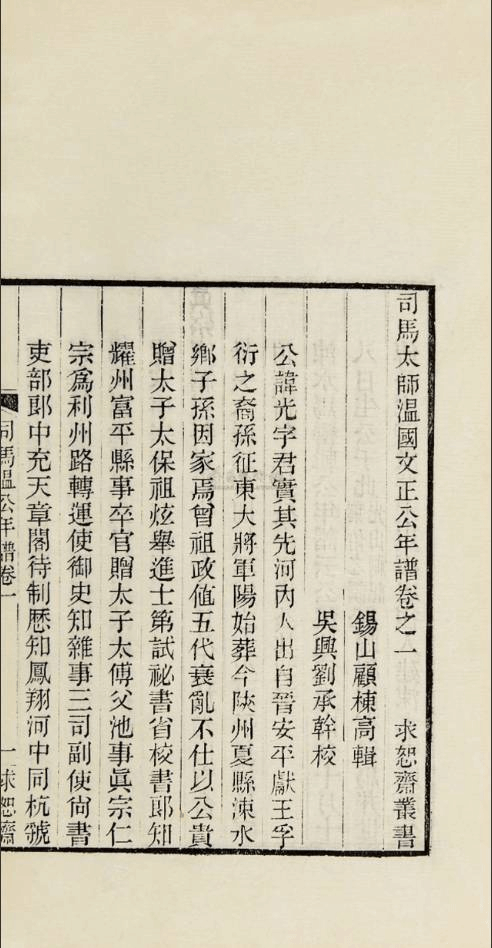 司馬太師溫國文正公年譜卷之一 求恕齋叢書
錫山顧棟高輯
吳興劉承幹校
公諱光字君實其先河內人出自晉安平獻王孚
衍之裔孫征東大將軍陽始葬今陝州夏縣涑水
鄉子孫因家焉曾祖政值五代衰亂不仕以公貴
贈太子太保祖炫舉進士第試祕書省校書郎知
耀州富平縣事卒官贈太子太傅父池事眞宗仁
宗爲利州路轉運使御史知雜事三司副使尙書
吏部郎中充天章閣待制歷知鳳翔河中同杭虢
司馬溫公年譜卷一 一 求恕齋